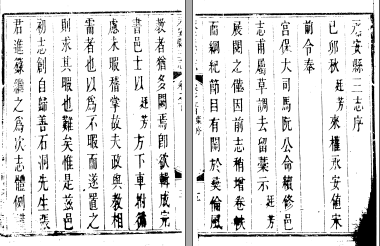 永安縣三志序
己卯秋廷芳來權永安值宋
前令奉
宮保大司馬阮公命續修邑
志甫屬草調去留藁示廷芳
展閱之僅因前志稍增卷帙
而綱紀節目有關於彝倫風
教者猶多闕焉即欲輯成完
書邑士以廷芳方下車
慮未暇稽掌故夫政與教相
需者也以為不暇而遂置之
則求其暇也難矣惟是茲邑
初志創自歸善石洞先生張
君進籙繼之為次志體例